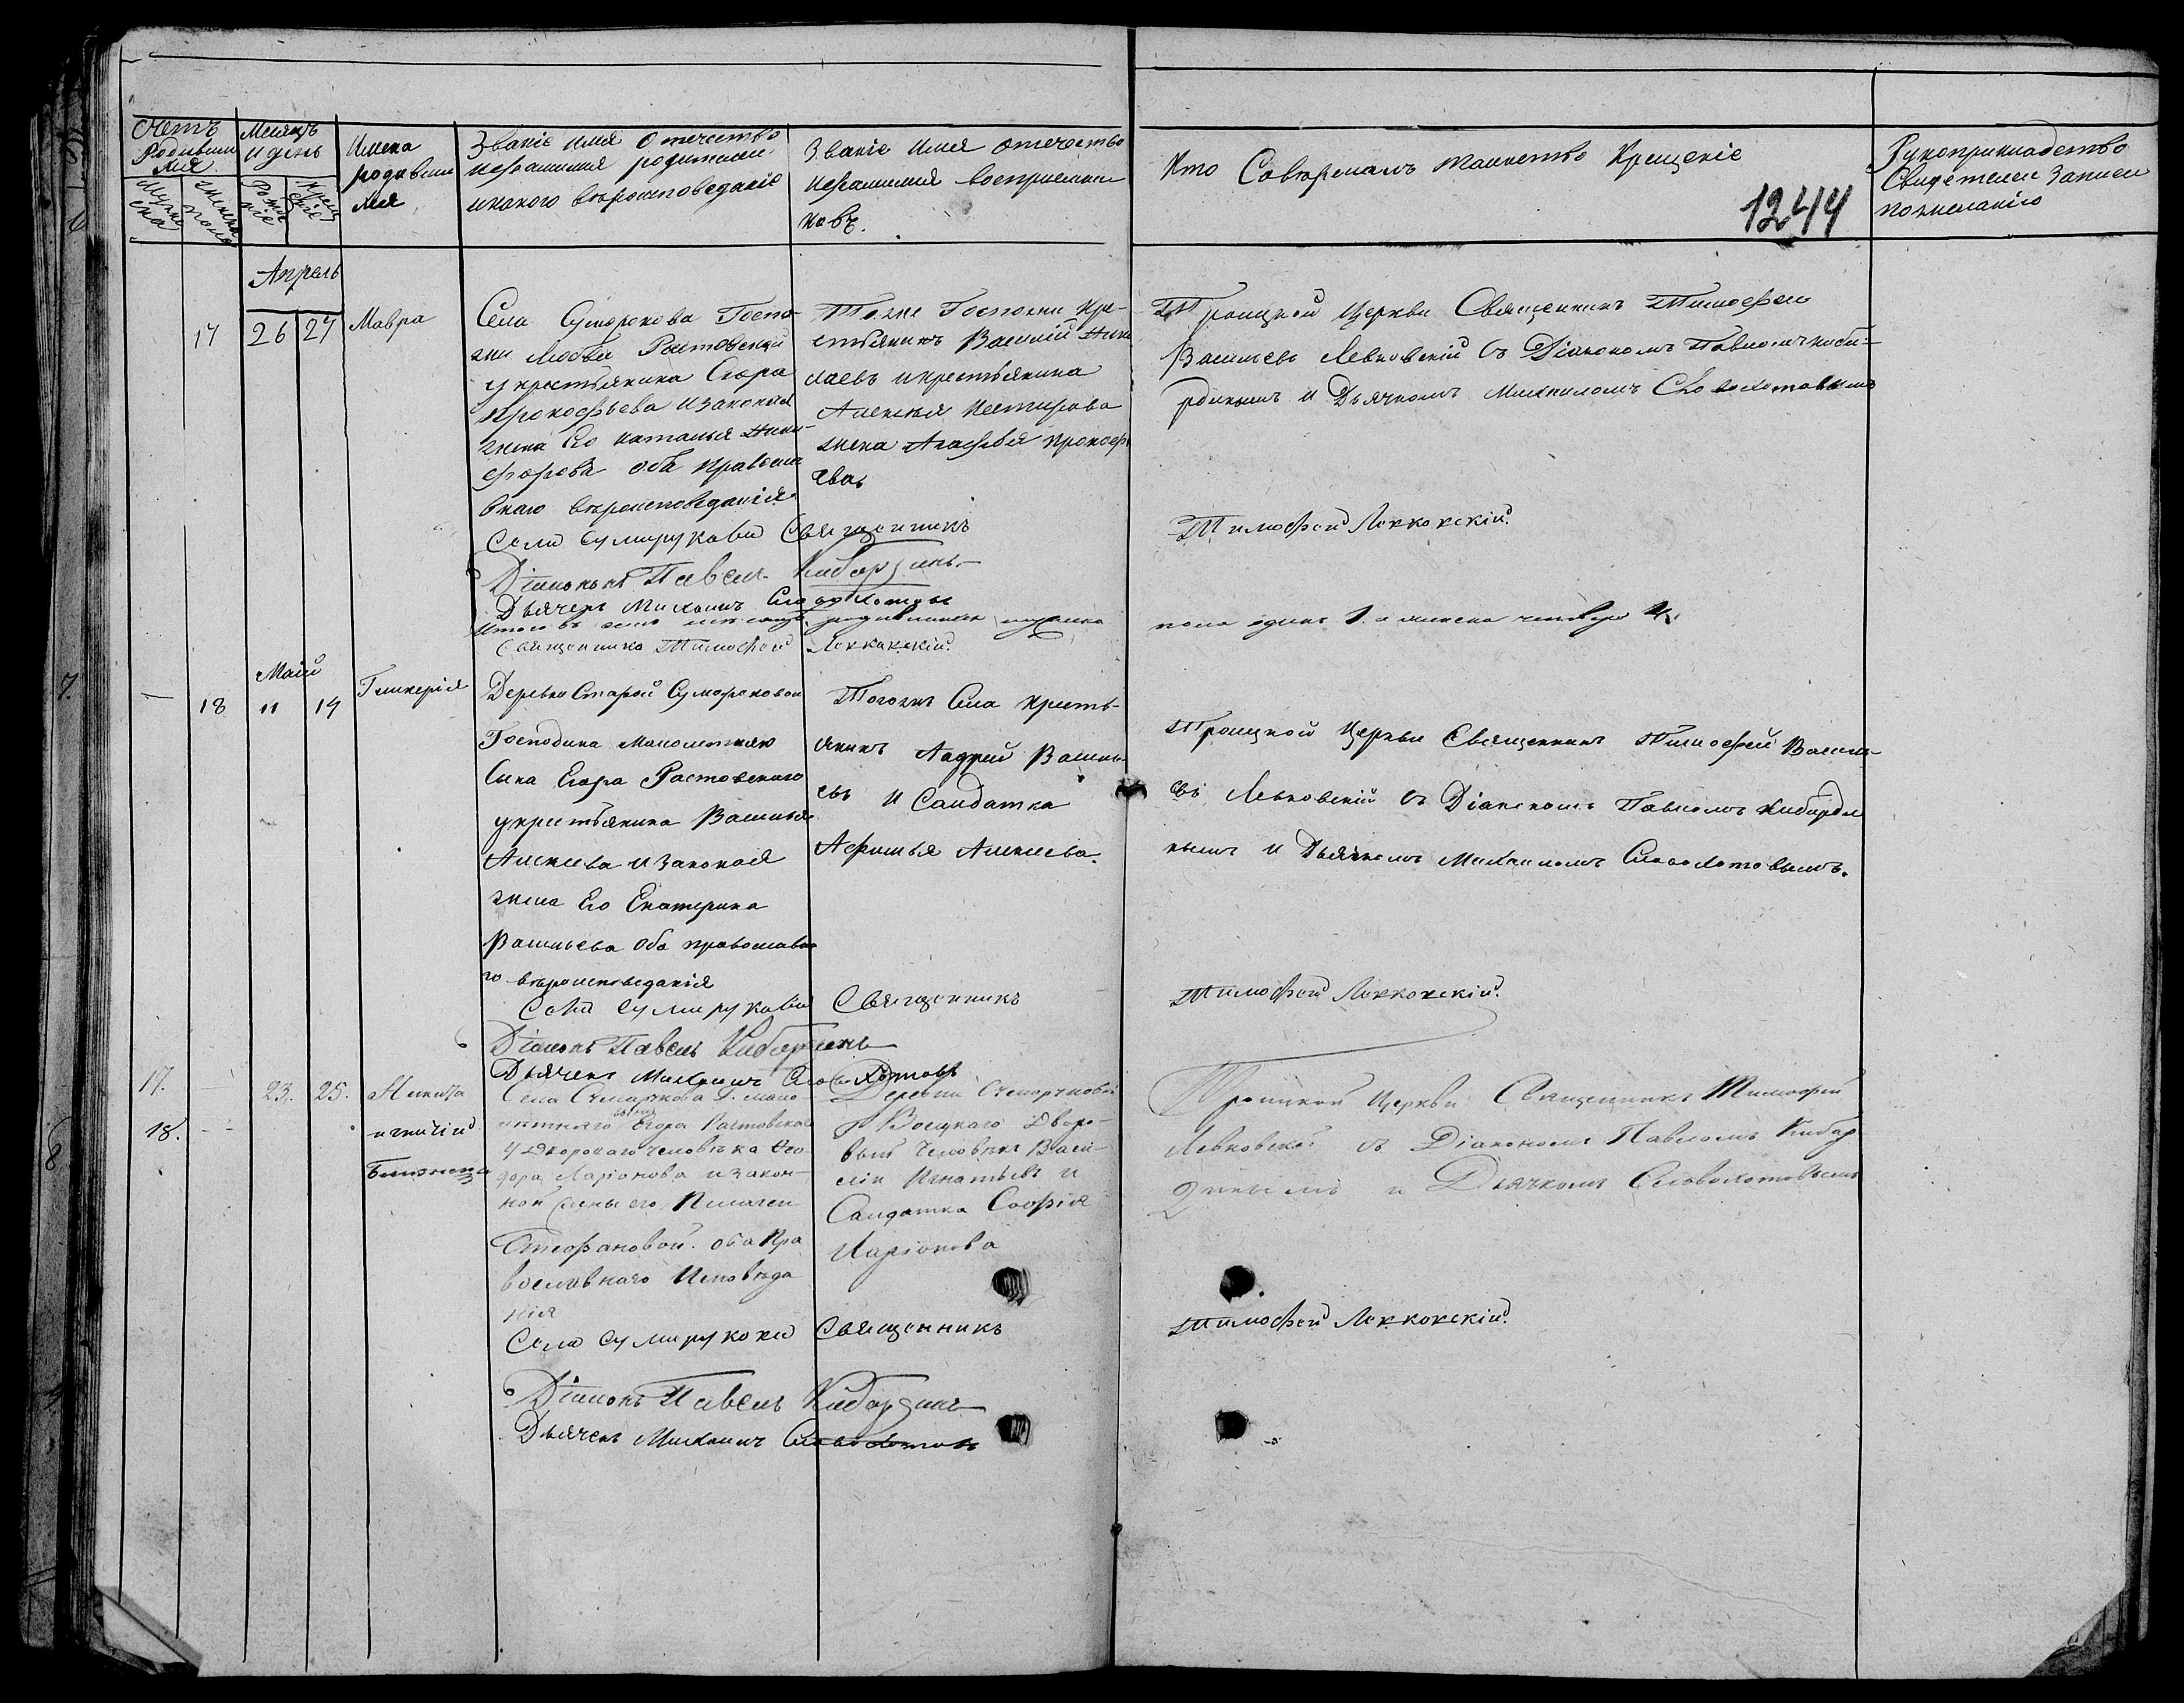 Счетъ
Родивши
хся.
Мужеска
Женска пола
Месяцъ
и день
Рожденіе
Крещеніе
Имена
родивши
хся
Званіе имя отечество
и фамилия родителей
и какого вероисповеданіе
Званіе имя отечество
и фамилия восприемни
ковъ.
Кто Совершалъ таинство Крещеніе
1244
Рукоприкладство
Свидетелей записи
по желанію
Апрель
17
26
27
Мавра
Села Суморокова Госпо-
жи Любви Ростовской
у крестьянина Егора
Прокофьева и законная
жена Его Наталья Ники-
форова оба православ
внаго вероисповеданія
Тояже Госпожи кре-
стьянинъ Василий Нико
лаевъ и крестьянина
Алексея Нестирова
жена Агафья Прокофь
ева.
Троицкой Церкви Священникъ Тимофей
Васильевъ Левковскій съ Діакономъ Павломъ Киба-
рдинымъ и Дьячкомъ Михаиломъ Словохотовымъ
Села Сумаруково Священникъ
Тимофей Левковскій.
Діаконъ Павелъ Кибардинъ
Дьячекъ Михаилъ Словохотовъ
Итого въ семъ месяце родившихся мужеска
пола одинъ 1. а женска четверо 4.
Священникъ Тимофей Левковскій.
Маій
18
11
14
Гликерія
Деревни Старой Сумароковой
Господина малолетняго
Сына Егора Ростовского
у крестьянина Василья
Алексеева и законная
жена Его Екатерина
Васильева оба православна
го вероисповеданія
Тогожъ Села кресть-
янинъ Андрей Василь-
евъ и Солдатка
Афимья Алексеева.
Троицкой Церкви Священникъ Тимофей Василь-
евъ Левковскій съ Діакономъ Павломъ Кибарди
нымъ и Дьячкомъ Михаиломъ Словохотовымъ.
Села Сумаруково Священникъ
Тимофей Левковскій.
Діаконъ Павелъ Кибардинъ
Дьячекъ Михаилъ Словохотовъ
17.
18.
23.
25.
Никита
и Игнатій
Близнецы
Села Сумарокова Г. мало-
летняго сына Егора Ростовскаго
у Двороваго человѣка Фео
дора Ларіонова и закон-
ной жены его Пелагеи
Стефановой. оба Пра
вославнаго Исповѣда
нія
Деревни Сумароковой
Г. Дворо-
вый Человѣкъ Васи-
лій Игнатьевъ и
Солдатка Софія
Ларіонова
Троицкой Церкви Священникъ Тимофей
Левковскій съ Діакономъ Павломъ Кибар
динымъ и Дьячкомъ Словохотовымъ
Села Сумаруково Священникъ
Тимофей Левковскій.
Діаконъ Павелъ Кибардинъ
Дьячекъ Михаилъ Словохотовъ